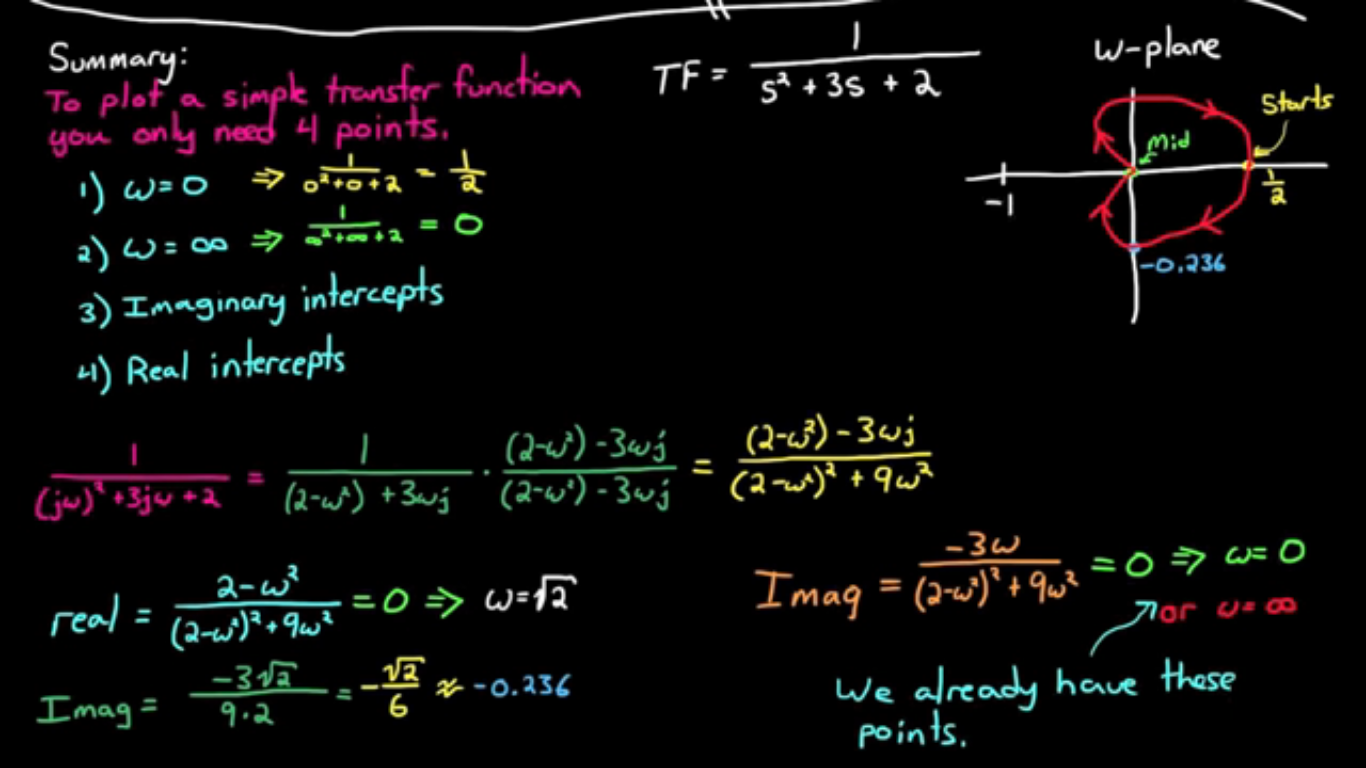 Summary:
To plot a simple transfer function
you only need 4 points.
1) ω=0 ⇒ 1/(0²+0+2) = 1/2
2) ω=∞ ⇒ 1/(∞²+∞+2) = 0
3) Imaginary intercepts
4) Real intercepts
TF = 1/(s²+3s+2)
w-plane
Starts
Mid
-1
1/2
-0.236
1/((jω)²+3jω+2) = 1/((2-ω²)+3ωj) · ((2-ω²)-3ωj)/((2-ω²)-3ωj) = ((2-ω²)-3ωj)/((2-ω²)²+9ω²)
real = (2-ω²)/((2-ω²)²+9ω²) = 0 ⇒ ω=√2
Imag = -3√2/(9·2) = -√2/6 ≈ -0.236
Imag = -3ω/((2-ω²)²+9ω²) = 0 ⇒ ω=0
or ω=∞
We already have these
points.